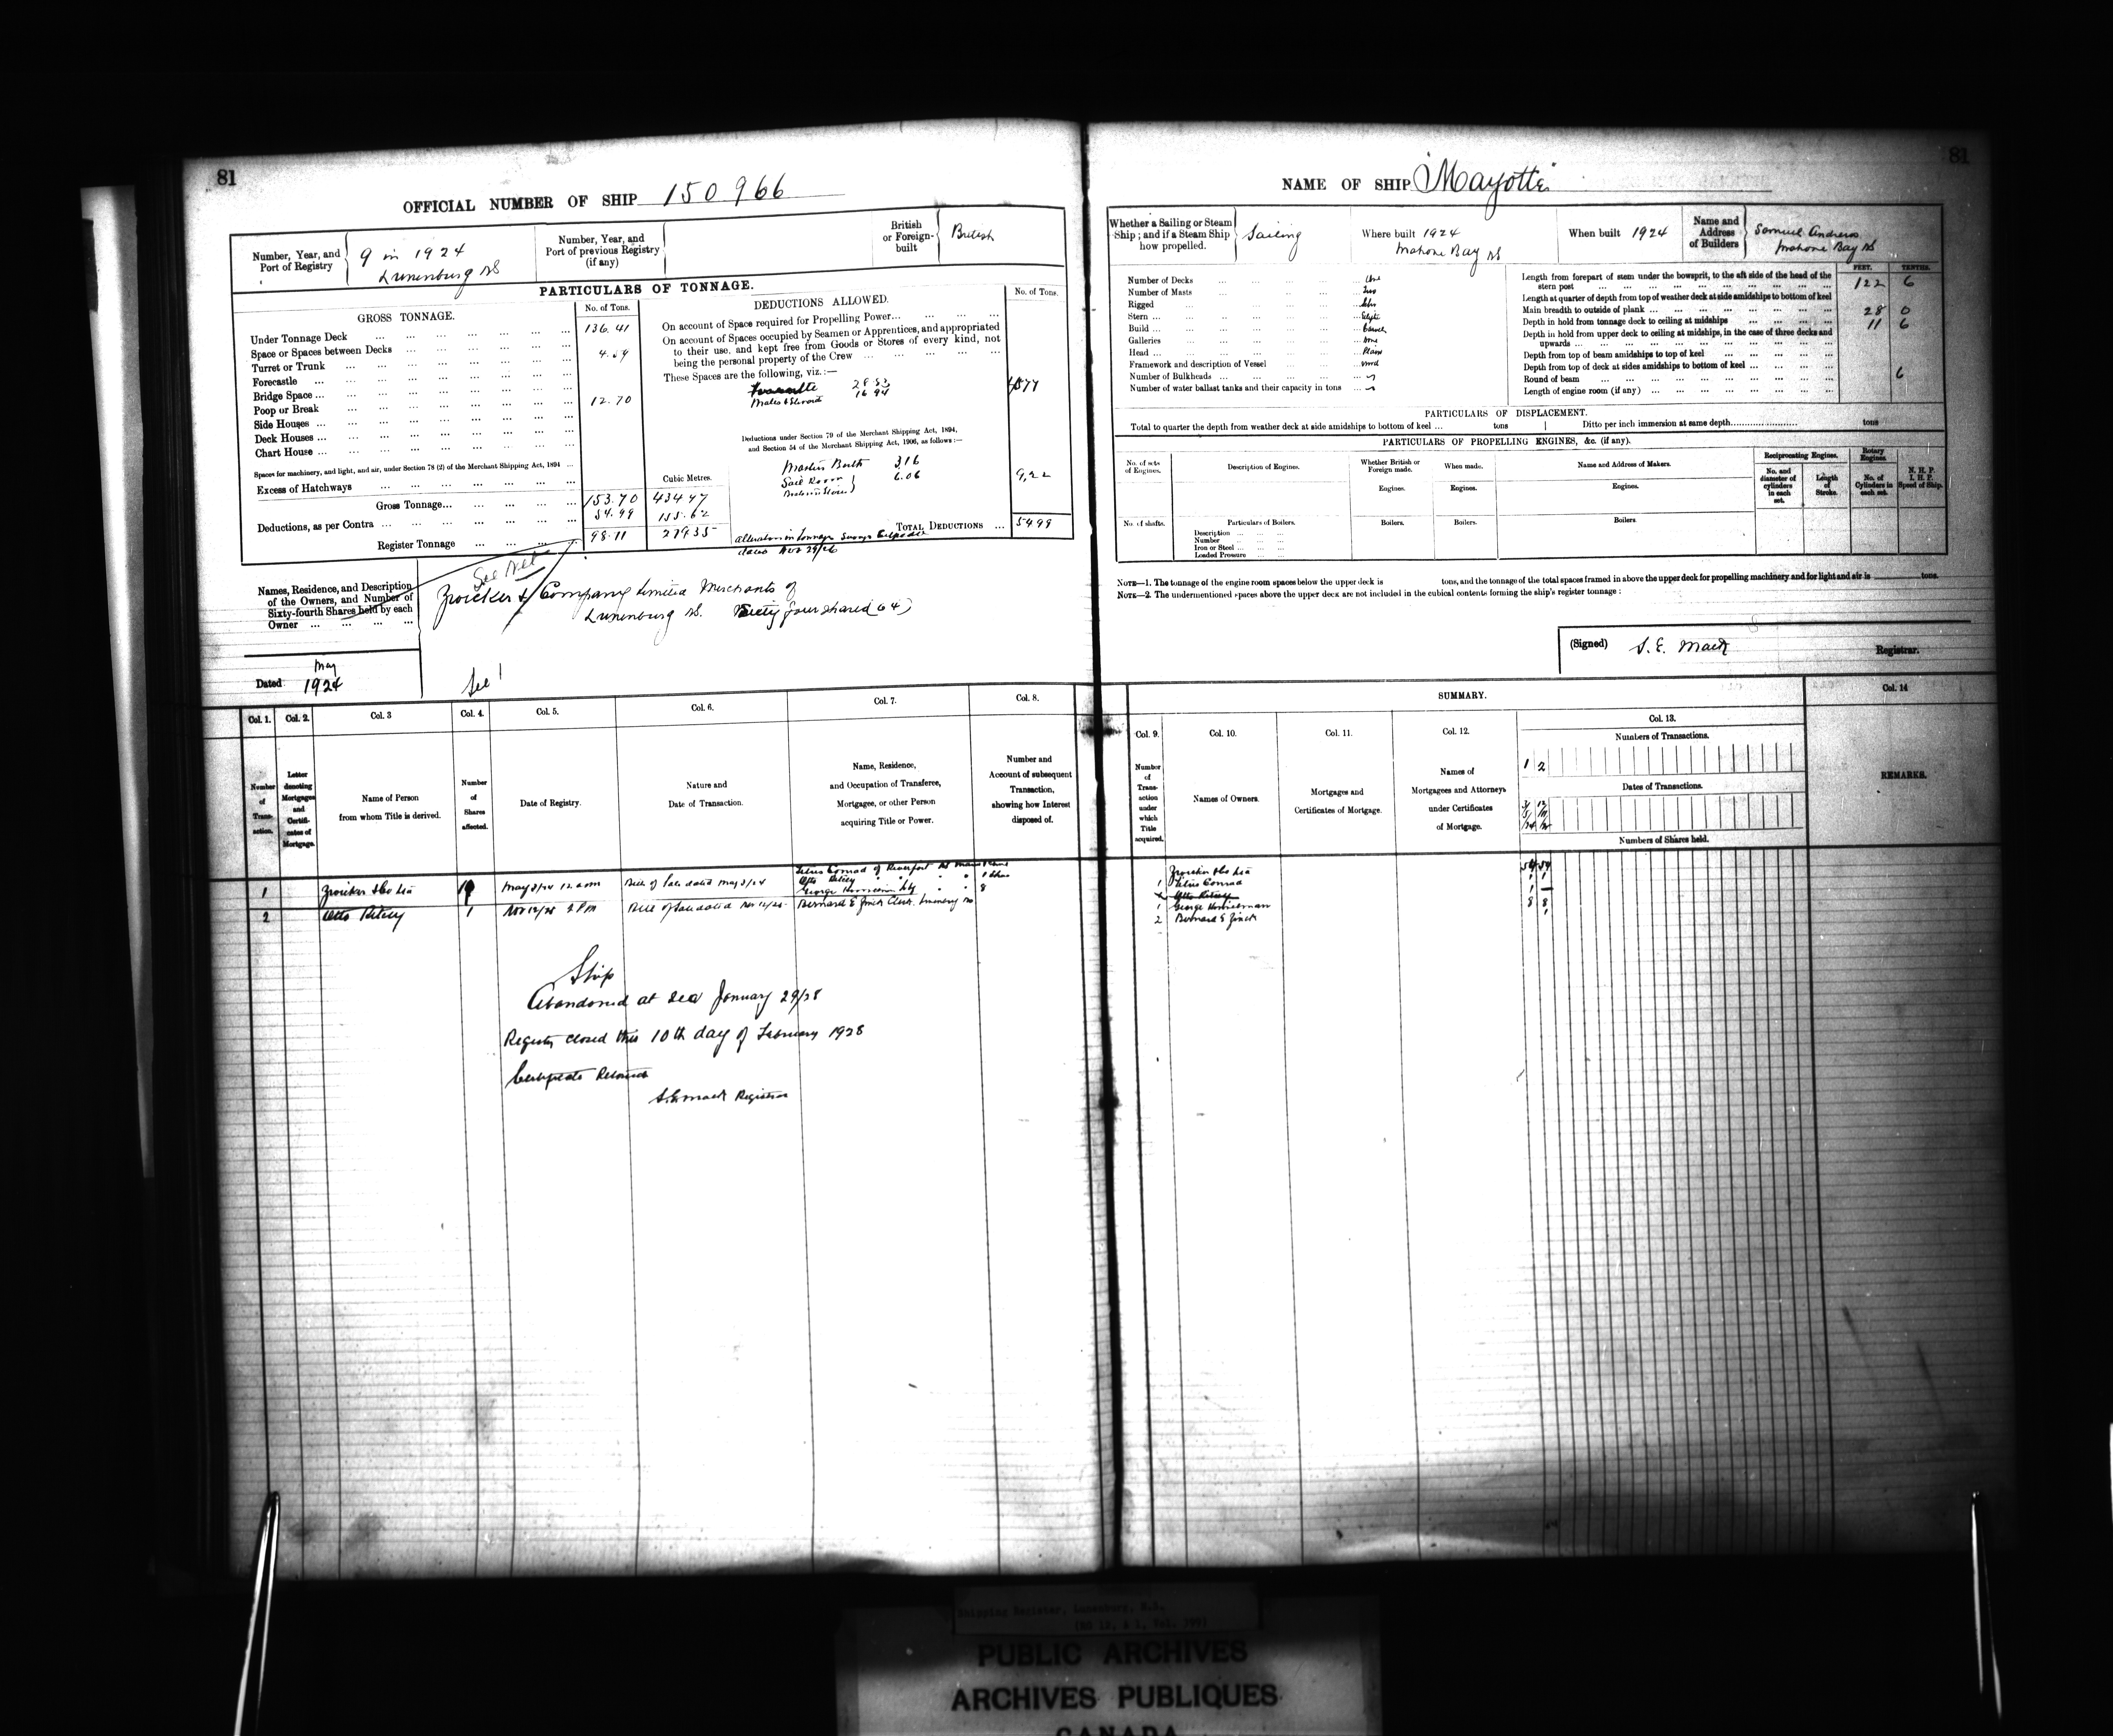 81
OFFICIAL NUMBER OF SHIP 150966
Number, Year, and Port of Registry
9 in 1924
Lunenburg NS
Number, Year, and Port of previous Registry (if any)
British or Foreign-built
British
PARTICULARS OF TONNAGE.
GROSS TONNAGE.
No. of Tons.
Under Tonnage Deck ... 136.41
Space or Spaces between Decks ...
Turret or Trunk ...
Forecastle ...
Bridge Space ...
Poop or Break ... 12.70
Side Houses ...
Deck Houses ...
Chart House ...
Spaces for machinery, and light, and air, under Section 78 (2) of the Merchant Shipping Act, 1894 ...
Excess of Hatchways ...
Cubic Metres.
Gross Tonnage... 153.70 434.97
Deductions, as per Contra ... 54.99 155.62
Register Tonnage ... 98.71 279.35
DEDUCTIONS ALLOWED.
No. of Tons.
On account of Space required for Propelling Power...
On account of Spaces occupied by Seamen or Apprentices, and appropriated
to their use, and kept free from Goods or Stores of every kind, not
being the personal property of the Crew ...
These Spaces are the following, viz.:—
28.83
Mates & Steward 16.94
Deductions under Section 79 of the Merchant Shipping Act, 1894,
and Section 54 of the Merchant Shipping Act, 1906, as follows:—
Masters Berth 3.16
Sail Room 6.06
9.22
TOTAL DEDUCTIONS ... 54.99
Alteration in tonnage
Names, Residence, and Description
of the Owners, and Number of
Sixty-fourth Shares held by each
Owner ...
Zwicker & Company Limited Merchants of
Lunenburg NS. Sixty four shares (64)
Dated May 1924
See
Col. 1. Col. 2. Col. 3 Col. 4. Col. 5. Col. 6. Col. 7. Col. 8.
Number of Transaction.
Letter denoting Mortgages and Certificates of Mortgage.
Name of Person from whom Title is derived.
Number of Shares affected.
Date of Registry.
Nature and Date of Transaction.
Name, Residence, and Occupation of Transferee, Mortgagee, or other Person acquiring Title or Power.
Number and Account of subsequent Transaction, showing how Interest disposed of.
1 Zwicker & Co Ltd 10 May 3/24 Bill of Sale dated May 3/24
Titus Conrad of Riverport NS
Otto Ritcey
George 8
2 Otto Ritcey 1 Bill of Sale dated Bernard E Zinck Clerk. Lunenburg NS
Ship
Abandoned at sea January 29/28
Register closed this 10th day of February 1928
Certificate
S.E. Mack Registrar
81
NAME OF SHIP "Mayotte"
Whether a Sailing or Steam Ship; and if a Steam Ship how propelled.
Sailing
Where built 1924
Mahone Bay NS
When built 1924
Name and Address of Builders
Samuel Andrews
Mahone Bay NS
Number of Decks ... One
Number of Masts ... Two
Rigged ...
Stern ...
Build ... Carvel
Galleries ... None
Head ... Plain
Framework and description of Vessel ... Wood
Number of Bulkheads ...
Number of water ballast tanks and their capacity in tons ...
FEET. TENTHS.
Length from forepart of stem under the bowsprit, to the aft side of the head of the
stern post ... 122 6
Length at quarter of depth from top of weather deck at side amidships to bottom of keel
Main breadth to outside of plank ... 28 0
Depth in hold from tonnage deck to ceiling at midships ... 11 6
Depth in hold from upper deck to ceiling at midships, in the case of three decks and
upwards ...
Depth from top of beam amidships to top of keel ...
Depth from top of deck at sides amidships to bottom of keel ...
Round of beam ... 6
Length of engine room (if any) ...
PARTICULARS OF DISPLACEMENT.
Total to quarter the depth from weather deck at side amidships to bottom of keel ... tons
Ditto per inch immersion at same depth ... tons
PARTICULARS OF PROPELLING ENGINES, &c. (if any).
No. of sets of Engines.
Description of Engines.
Whether British or Foreign made.
When made.
Name and Address of Makers.
Reciprocating Engines.
Rotary Engines.
N. H. P. I. H. P. Speed of Ship.
Engines. Engines. Engines.
No. and diameter of cylinders in each set.
Length of Stroke.
No. of Cylinders in each set.
No. of shafts.
Particulars of Boilers.
Boilers. Boilers. Boilers.
Description ...
Number ...
Iron or Steel ...
Loaded Pressure ...
NOTE—1. The tonnage of the engine room spaces below the upper deck is tons, and the tonnage of the total spaces framed in above the upper deck for propelling machinery and for light and air is tons.
NOTE—2. The undermentioned spaces above the upper deck are not included in the cubical contents forming the ship's register tonnage:
(Signed) S. E. Mack
Registrar.
SUMMARY.
Col. 9. Col. 10. Col. 11. Col. 12. Col. 13. Col. 14
Number of Transaction under which Title acquired.
Names of Owners.
Mortgages and Certificates of Mortgage.
Names of Mortgagees and Attorneys under Certificates of Mortgage.
Numbers of Transactions.
1 2
Dates of Transactions.
Numbers of Shares held.
REMARKS.
Zwicker & Co Ltd 54 54
1 Titus Conrad 1 1
Otto Ritcey 1 —
1 George 8 8
2 Bernard E Zinck 1
Shipping Register, Lunenburg, N.S.
PUBLIC ARCHIVES
ARCHIVES PUBLIQUES
CANADA